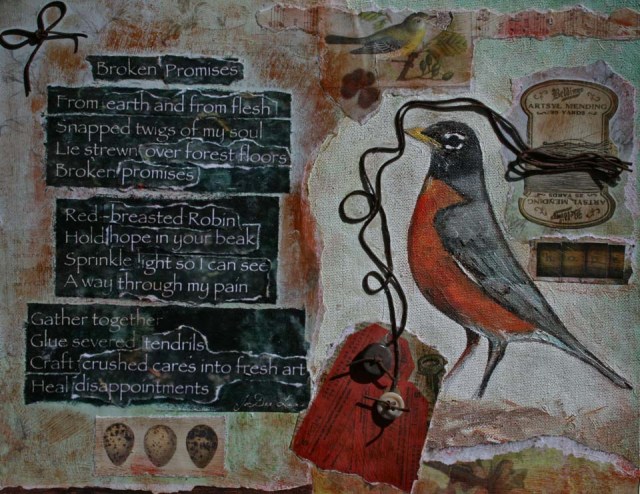 Broken Promises
From earth and from flesh
Snapped twigs of my soul
Lie strewn over forest floors
Broken promises
Red-breasted Robin
Hold hope in your beak
Sprinkle light so I can see
A way through my pain
Gather together
Glue severed tendrils
Craft crushed cares into fresh art
Heal disappointments
ARTSYL MENDING
YARDS
ARTSYL MENDING